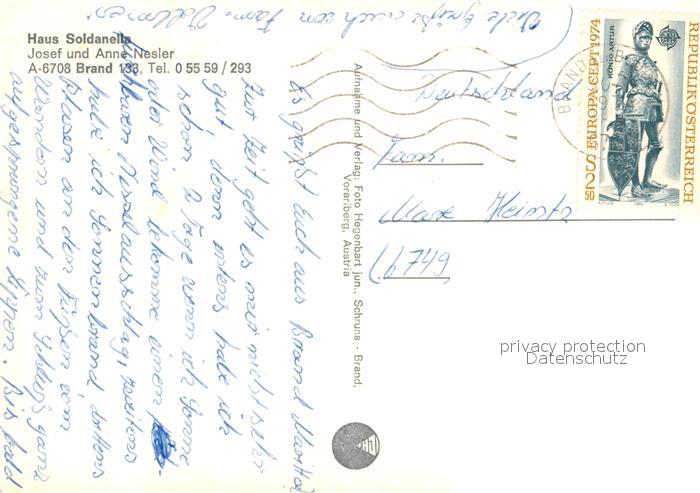 Haus Soldanella
Josef und Anne Nesler
A-6708 Brand 133, Tel. 0 55 59 / 293
Viele Grüße auch von Fam.
Es grüßt Euch aus Brand
Zur Zeit geht es mir nicht sehr
gut denn erstens habe ich
schon 2 Tage wenn ich Sonne
oder Wind bekomme einen
Nesselausschlag, zweitens
habe ich Sonnenbrand, drittens
Blasen an den Füßen vom
Wandern und zum Schluß ganz
aufgesprungene Lippen. Bis bald
Aufnahme und Verlag: Foto Hegenbart jun., Schruns - Brand,
Vorarlberg, Austria
Deutschland
Fam.
Max Heintz
(6749)
REPUBLIK ÖSTERREICH
EUROPA CEPT 1974
KÖNIG ARTUR
S 2.50
BRAND
privacy protection
Datenschutz